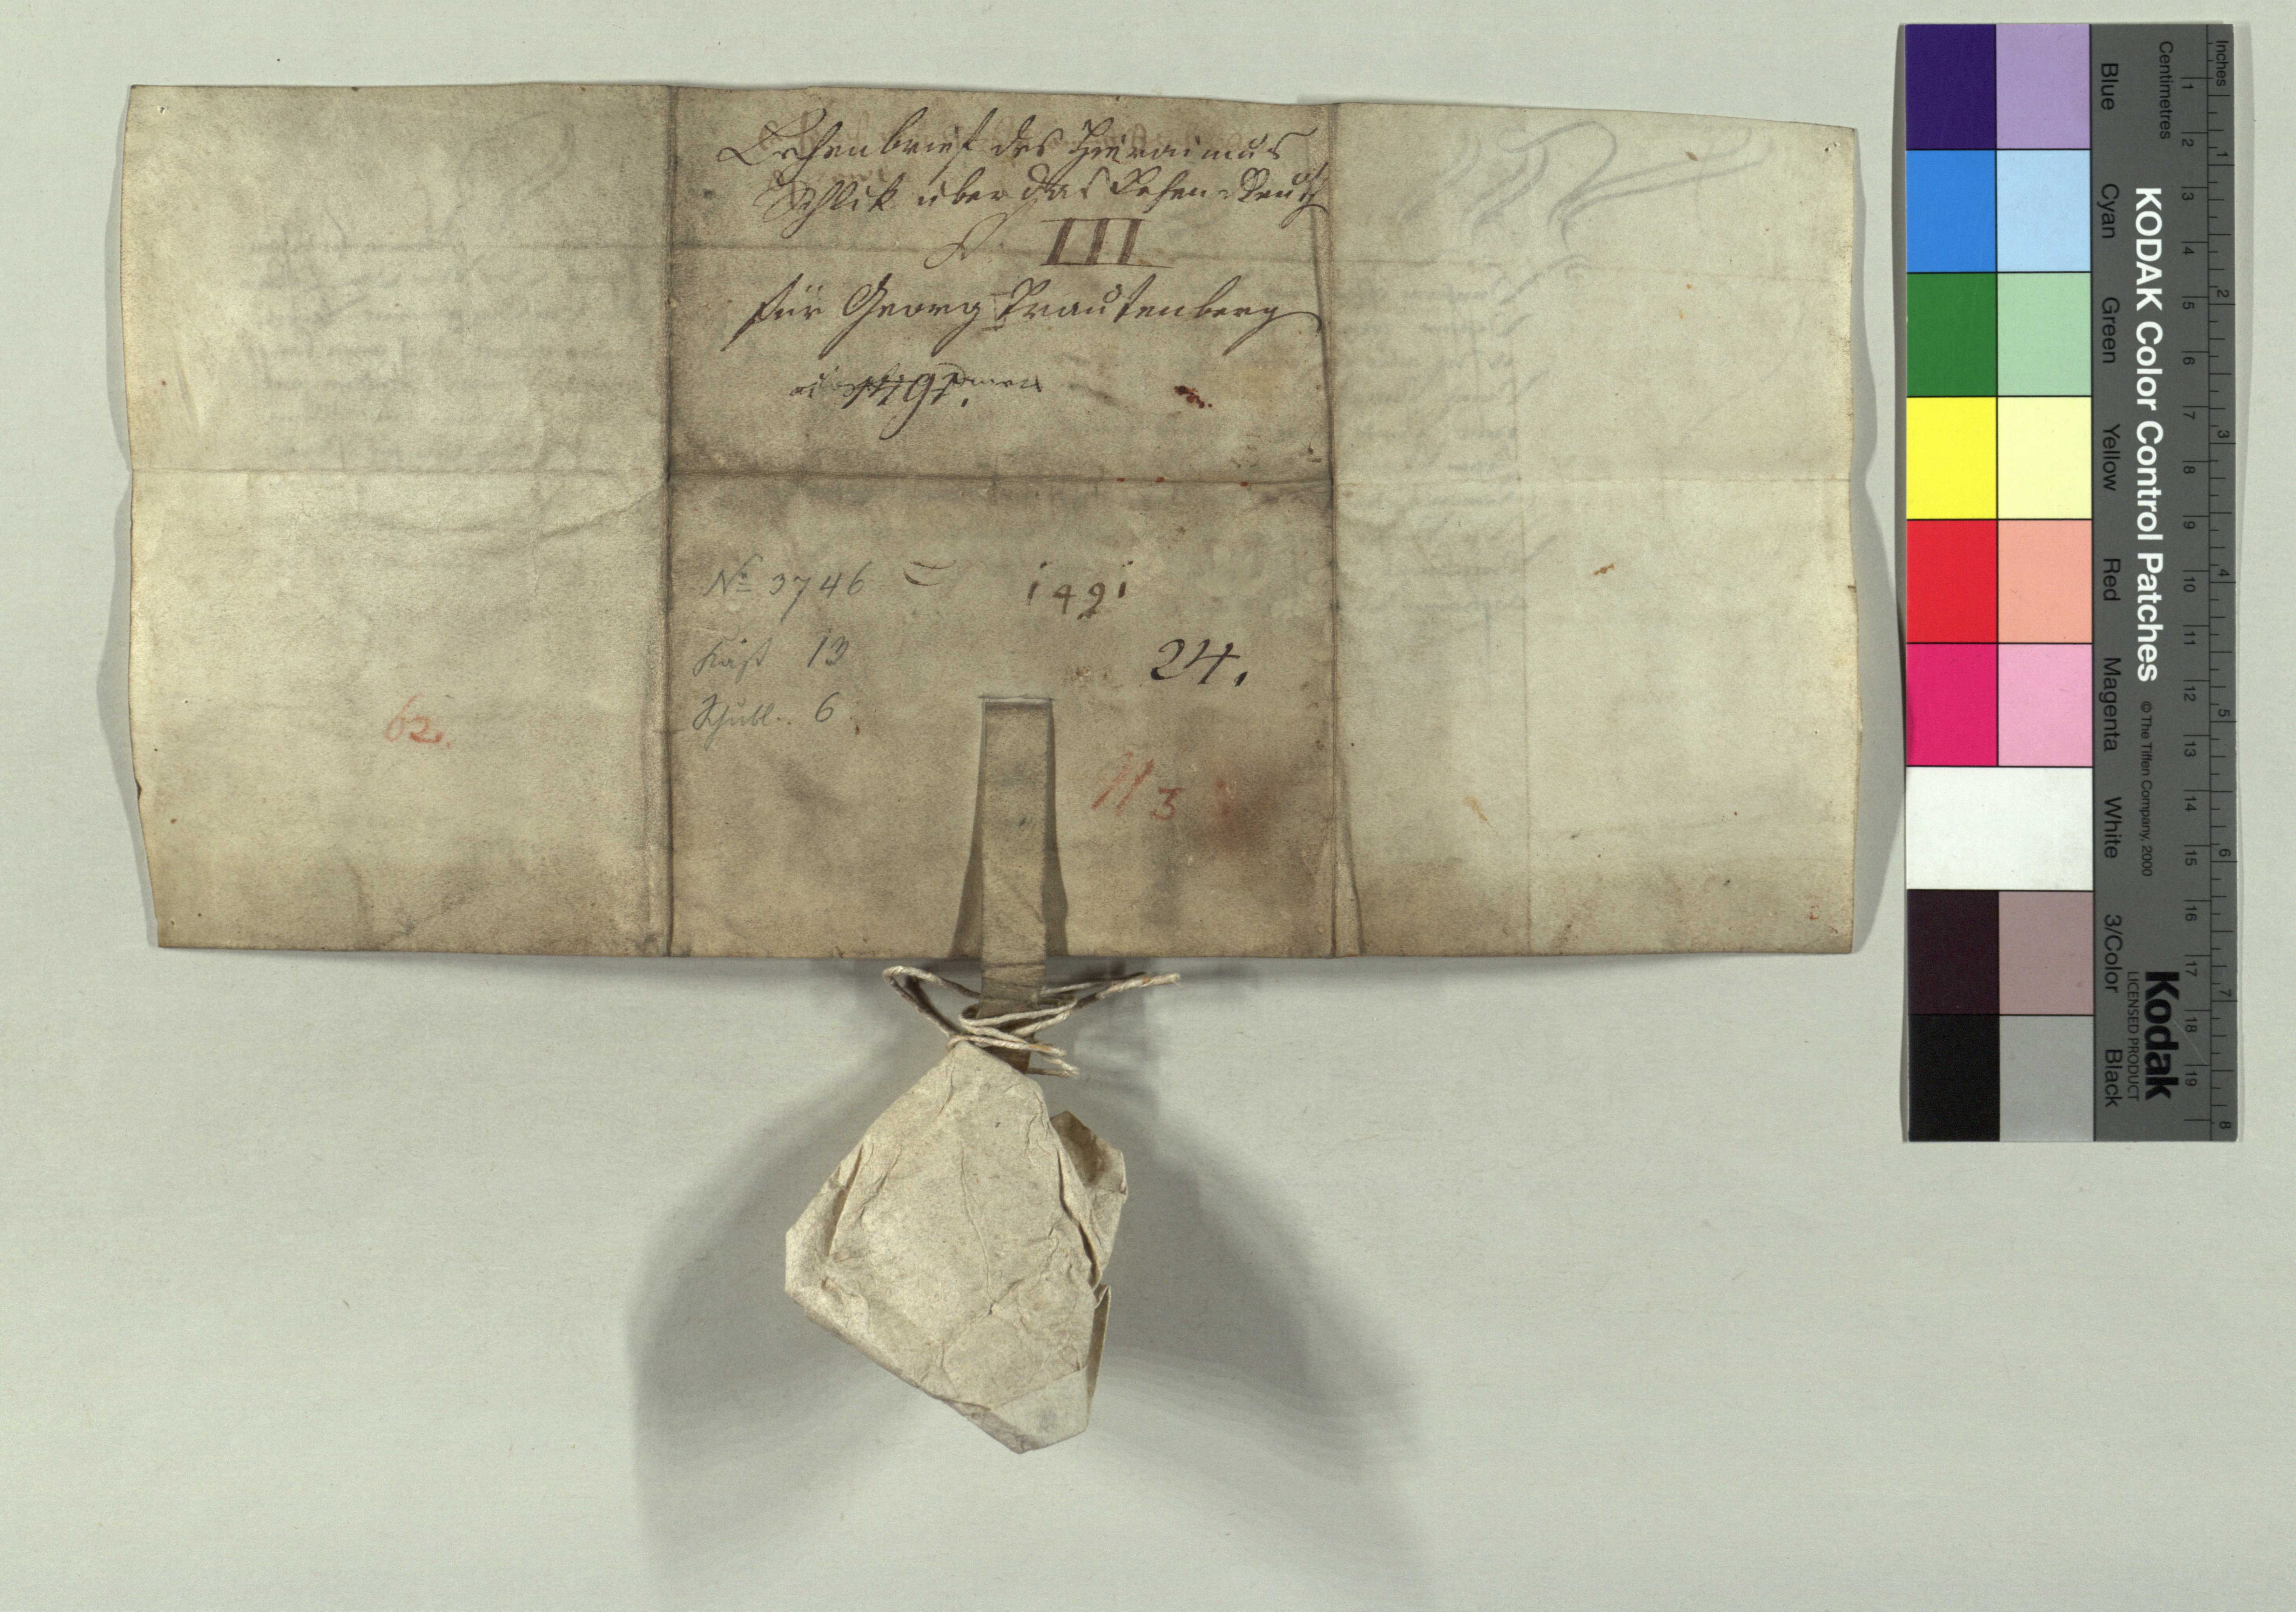 Lehenbrief des Hieroimus
Schlik über das Lehen
III
für Georg Trautenberg
1491.
No 3746 = 1491
Kast 13
24.
Schubl. 6
62.
N 3
KODAK Color Control Patches © The Tiffen Company, 2000
Kodak
LICENSED PRODUCT
Blue Cyan Green Yellow Red Magenta White 3/Color Black
Centimetres 1 2 3 4 5 6 7 8 9 10 11 12 13 14 15 16 17 18 19
Inches 1 2 3 4 5 6 7 8